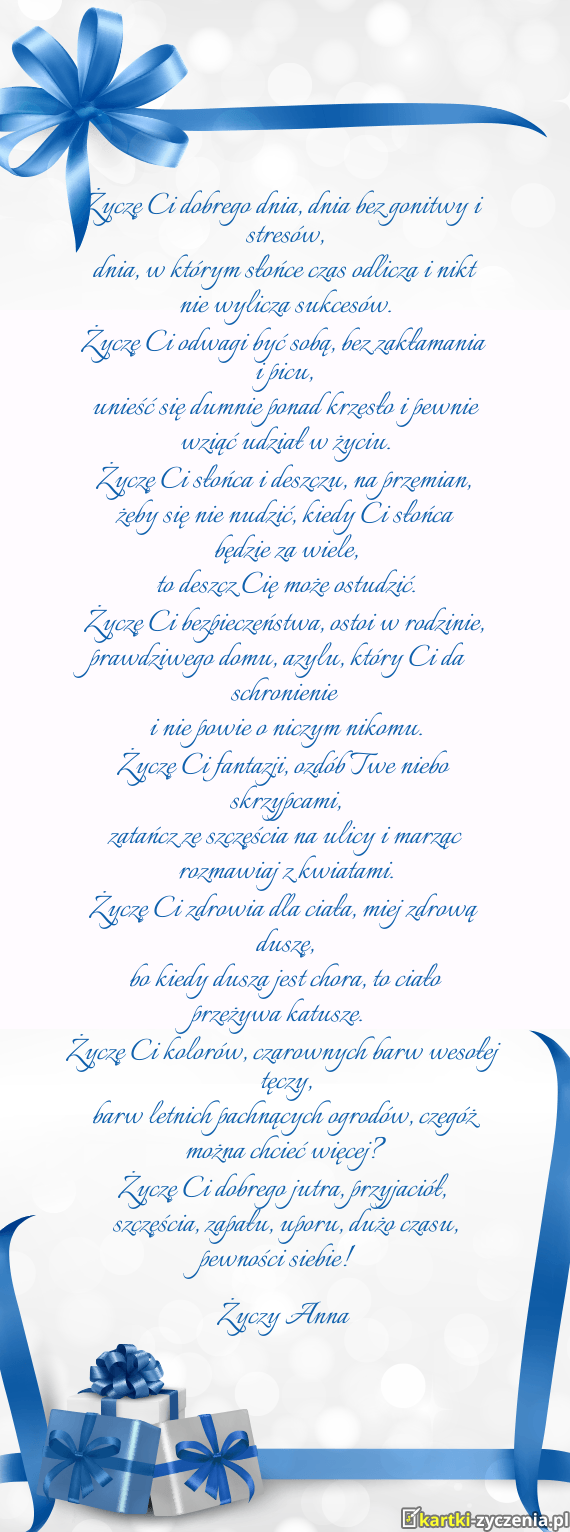 Życzę Ci dobrego dnia, dnia bez gonitwy i
stresów,
dnia, w którym słońce czas odlicza i nikt
nie wylicza sukcesów.
Życzę Ci odwagi być sobą, bez zakłamania
i picu,
unieść się dumnie ponad krzesło i pewnie
wziąć udział w życiu.
Życzę Ci słońca i deszczu, na przemian,
żeby się nie nudzić, kiedy Ci słońca
będzie za wiele,
to deszcz Cię może ostudzić.
Życzę Ci bezpieczeństwa, ostoi w rodzinie,
prawdziwego domu, azylu, który Ci da
schronienie
i nie powie o niczym nikomu.
Życzę Ci fantazji, ozdób Twe niebo
skrzypcami,
zatańcz ze szczęścia na ulicy i marząc
rozmawiaj z kwiatami.
Życzę Ci zdrowia dla ciała, miej zdrową
duszę,
bo kiedy dusza jest chora, to ciało
przeżywa katusze.
Życzę Ci kolorów, czarownych barw wesołej
tęczy,
barw letnich pachnących ogrodów, czegóż
można chcieć więcej?
Życzę Ci dobrego jutra, przyjaciół,
szczęścia, zapału, uporu, dużo czasu,
pewności siebie!
Życzy Anna
kartki-zyczenia.pl